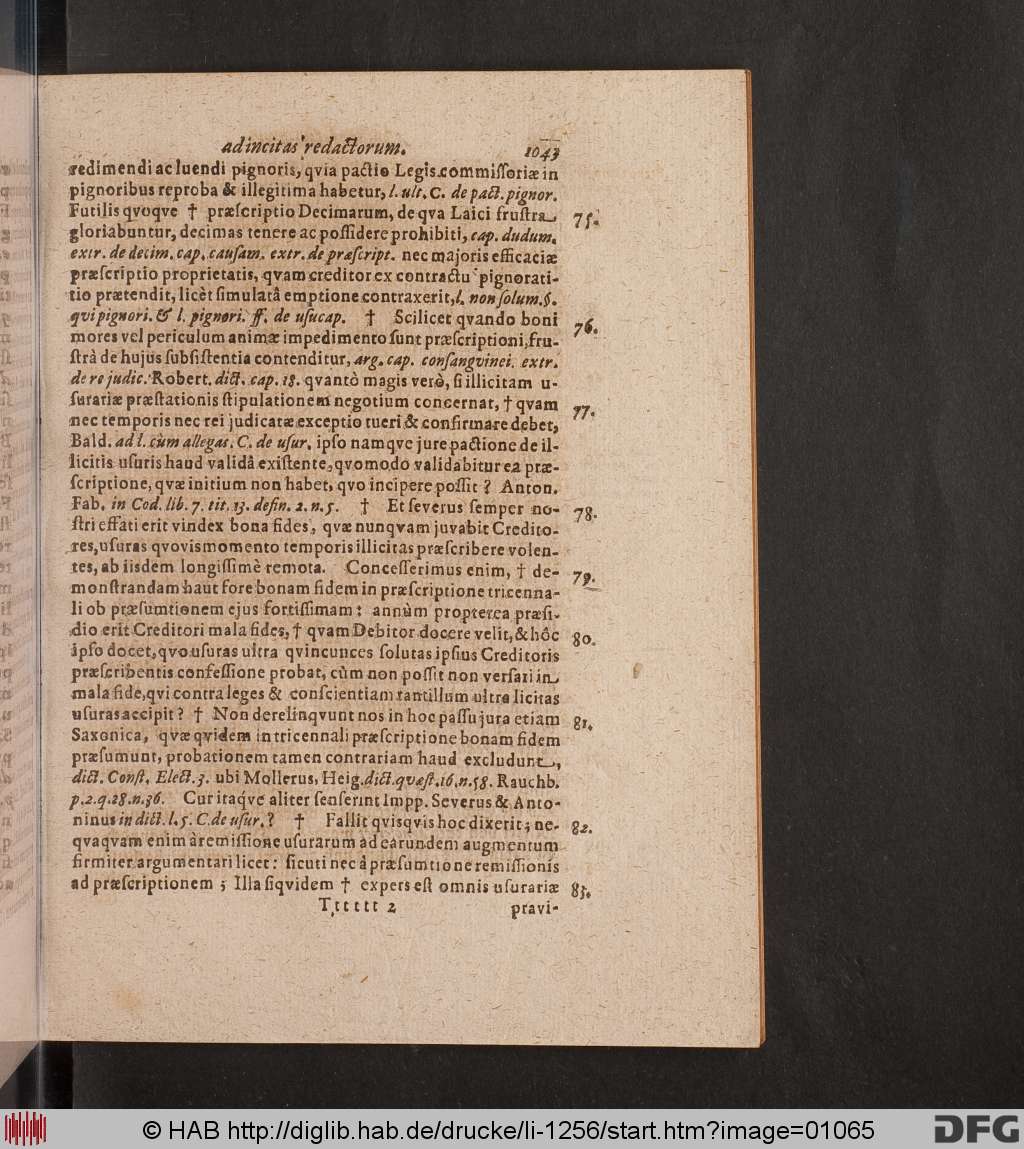 ad incitas redactorum. 1043
redimendi ac luendi pignoris, qvia pactio Legis commissoriæ in
pignoribus reproba & illegitima habetur, l. ult. C. de pact. pignor.
Futilis qvoqve † præscriptio Decimarum, de qva Laici frustra 75.
gloriabuntur, decimas tenere ac possidere prohibiti, cap. dudum.
extr. de decim. cap. causam. extr. de præscript. nec majoris efficaciæ
præscriptio proprietatis, qvam creditor ex contractu pignorati-
tio prætendit, licèt simulatâ emptione contraxerit, l. non solum. §.
qui pignori. & l. pignori. ff. de usucap. † Scilicet qvando boni 76.
mores vel periculum animæ impedimento sunt præscriptioni, fru-
strà de hujus subsistentia contenditur, arg. cap. consangvinei. extr.
de re judic. Robert. dict. cap. 18. qvantò magis verò, si illicitam u-
surariæ præstationis stipulationem negotium concernat, † qvam 77.
nec temporis nec rei judicatæ exceptio tueri & confirmare debet,
Bald. ad l. cùm allegas. C. de usur. ipso namqve jure pactione de il-
licitis usuris haud validâ existente, qvomodo validabitur ea præ-
scriptione, qvæ initium non habet, qvo incipere possit? Anton.
Fab. in Cod. lib. 7. tit. 13. defin. 2. n. 5. † Et severus semper no- 78.
stri effati erit vindex bona fides, qvæ nunqvam juvabit Credito-
res, usuras qvovis momento temporis illicitas præscribere volen-
tes, ab iisdem longissimè remota. Concesserimus enim, † de- 79.
monstrandam haut fore bonam fidem in præscriptione tricenna-
li ob præsumtionem ejus fortissimam: annùm propterea præsi-
dio erit Creditori mala fides, † qvam Debitor docere velit, & hôc 80.
ipso docet, qvo usuras ultra qvincunces solutas ipsius Creditoris
præscribentis confessione probat, cùm non possit non versari in
mala fide, qvi contra leges & conscientiam tantillum ultra licitas
usuras accipit? † Non derelinqvunt nos in hoc passu jura etiam 81.
Saxonica, qvæ qvidem in tricennali præscriptione bonam fidem
præsumunt, probationem tamen contrariam haud excludunt,
dict. Const. Elect. 3. ubi Mollerus, Heig. dict. qvæst. 16. n. 58. Rauchb.
p. 2. q. 28. n. 36. Cur itaqve aliter senserint Impp. Severus & Anto-
ninus in dict. l. 5. C. de usur.? † Fallit qvisqvis hoc dixerit; ne- 82.
qvaqvam enim à remissione usurarum ad earundem augmentum
firmiter argumentari licet: sicuti nec â præsumtione remissionis
ad præscriptionem; Illa siqvidem † expers est omnis usurariæ 83.
Tttttt 2 pravi-
© HAB http://diglib.hab.de/drucke/li-1256/start.htm?image=01065
DFG